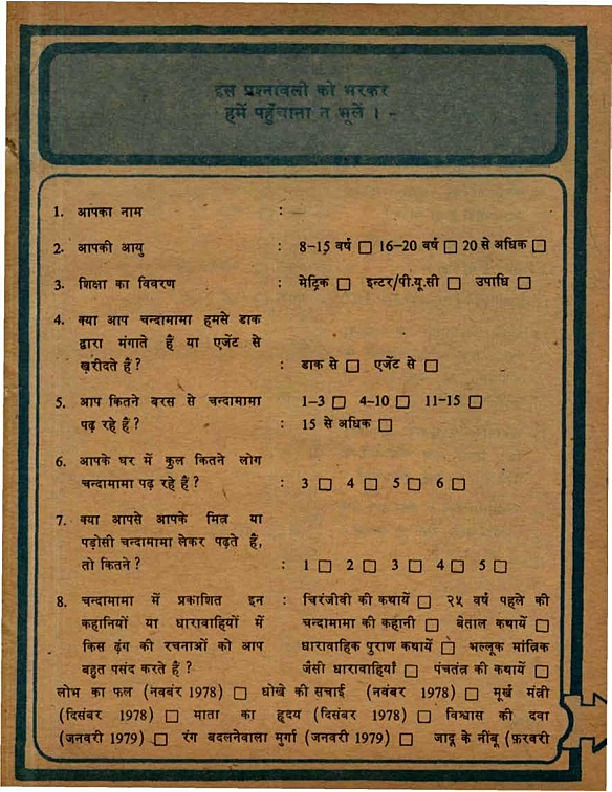 इस प्रश्नावली को भरकर
हमें पहुँचाना न भूलें । -
1. आपका नाम :
2. आपकी आयु : 8-15 वर्ष □ 16-20 वर्ष □ 20 से अधिक □
3. शिक्षा का विवरण : मेट्रिक □ इन्टर/पी.यू.सी □ उपाधि □
4. क्या आप चन्दामामा हमसे डाक
द्वारा मंगाले हैं या एजेंट से
ख़रीदते हैं ? : डाक से □ एजेंट से □
5. आप कितने बरस से चन्दामामा 1-3 □ 4-10 □ 11-15 □
पढ़ रहे हैं ? : 15 से अधिक □
6. आपके घर में कुल कितने लोग
चन्दामामा पढ़ रहे हैं ? : 3 □ 4 □ 5 □ 6 □
7. क्या आपसे आपके मित्र या
पड़ोसी चन्दामामा लेकर पढ़ते हैं,
तो कितने ? : 1 □ 2 □ 3 □ 4 □ 5 □
8. चन्दामामा में प्रकाशित इन : चिरंजीवी की कथायें □ २५ वर्ष पहले की
कहानियों या धारावाहियों में चन्दामामा की कहानी □ बेताल कथायें □
किस ढ़ंग की रचनाओं को आप धारावाहिक पुराण कथायें □ भल्लूक मांत्रिक
बहुत पसंद करते हैं ? जैसी धारावाहियाँ □ पंचतंत्र की कथायें □
लोभ का फल (नवबंर 1978) □ धोखे की सचाई (नवबंर 1978) □ मूर्ख मंत्री
(दिसंबर 1978) □ माता का हृदय (दिसंबर 1978) □ विश्वास की दवा
(जनवरी 1979) □ रंग बदलनेवाला मुर्गा (जनवरी 1979) □ जादू के नींबू (फ़रवरी